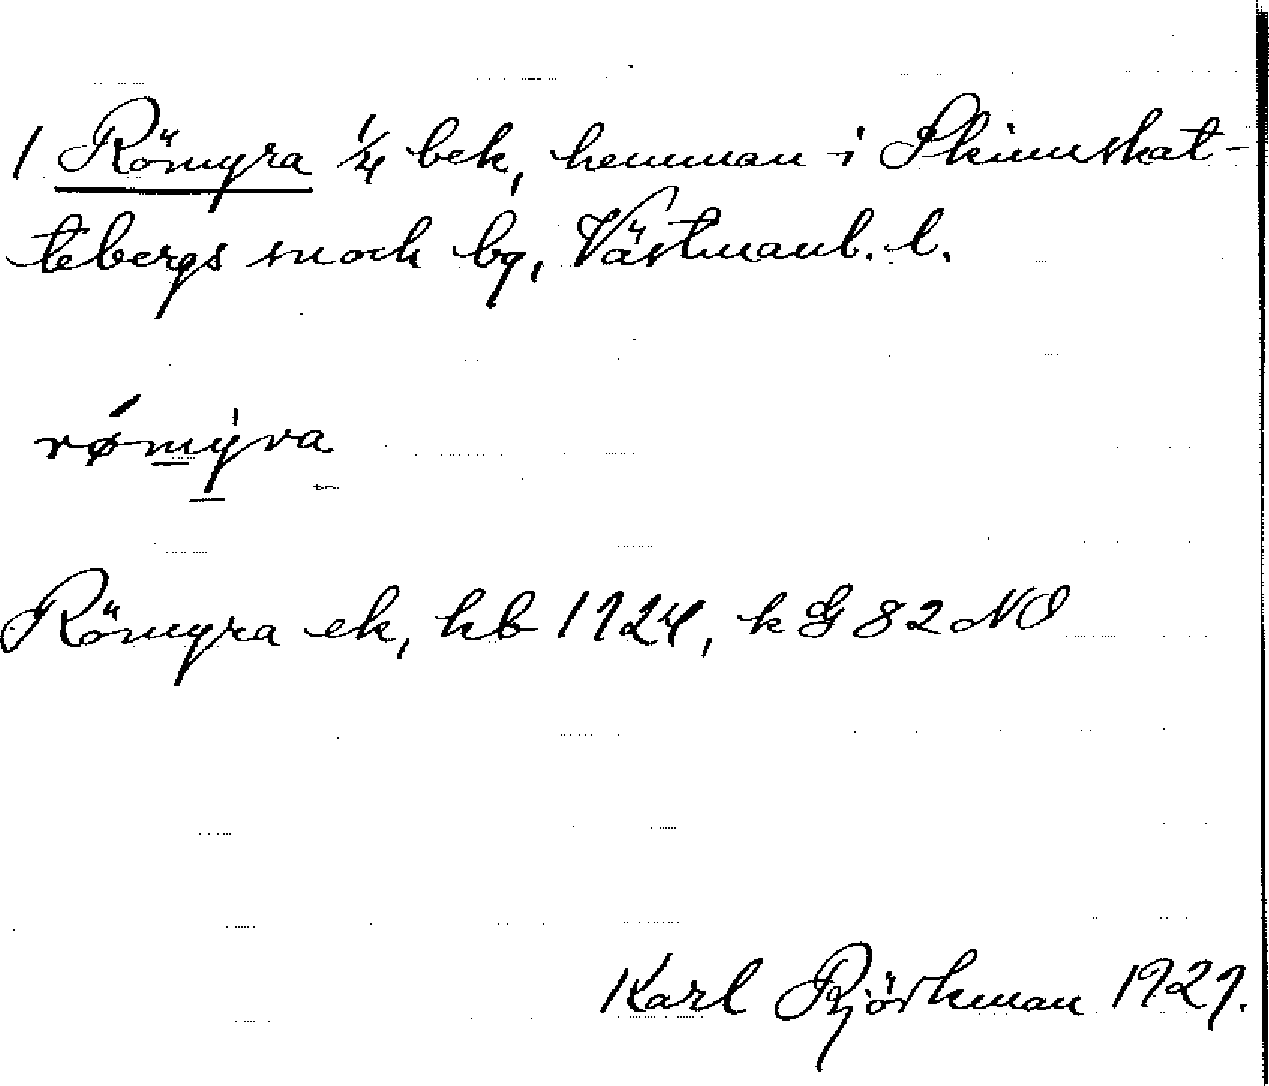 1 Römyra 1/4 bek, hemman i Skinnskat-
tebergs sn och bg, Västmanl. l.
rǿmy̍ra
Römyra ek, hb 1924, k G 82 NO
Karl Björkman 1929.